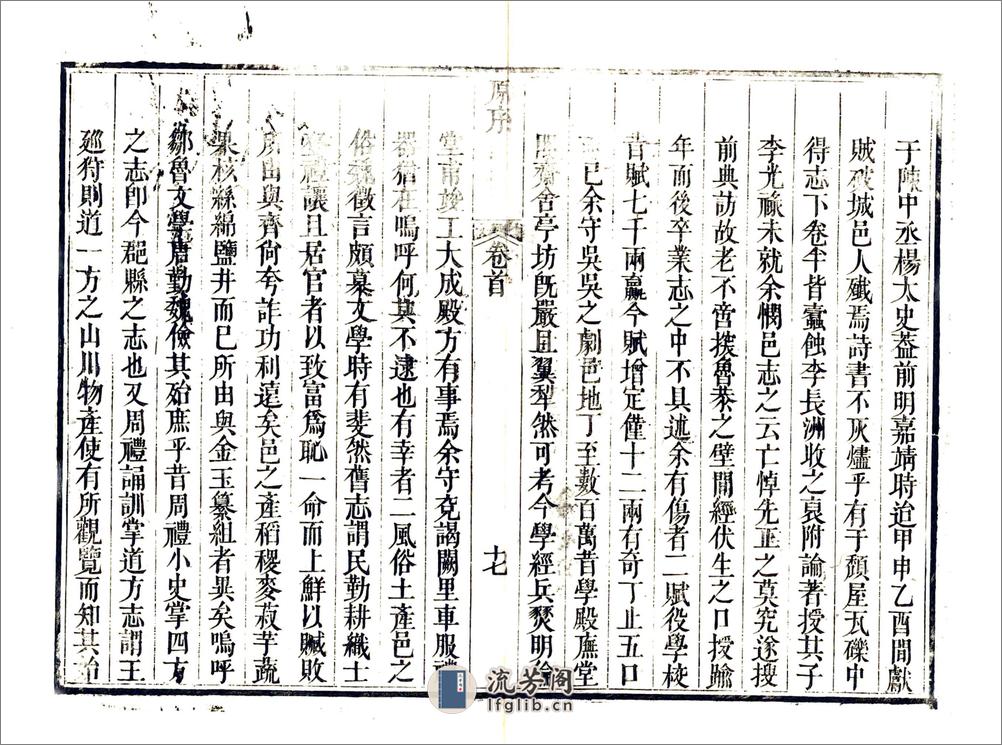 于陳中丞楊太史葢前明嘉靖時迨甲申乙酉間獻
賊破城邑人殲焉詩書不灰燼乎有于頹屋瓦礫中
得志下卷半皆蠹蝕李長洲收之裒附論著授其子
李光祿未就余憫邑志之云亡悼先正之莫究遂搜
前典訪故老不啻援魯恭之壁間經伏生之口授踰
年而後卒業志之中不具述余有傷者二賦役學校
昔賦七千兩贏今賦增定僅十二兩有奇丁止五口
已余守吳吳之劇邑地丁至數百萬昔學殿廡堂
齋舍亭坊旣嚴且翼犂然可考今學經兵燹明倫
堂甫竣工大成殿方有事焉余守兗謁闕里車服禮
器猶在嗚呼何其不逮也有幸者二風俗土產邑之
俗徵言頗慕文學時有斐然舊志謂民勤耕織士
禮讓且居官者以致富爲恥一命而上鮮以贓敗
所由與齊尙夸詐功利遠矣邑之產稻稷麥菽芋蔬
果核絲綿鹽井而已所由與金玉纂組者異矣嗚呼
鄒魯文學唐勤魏儉其殆庶乎昔周禮小史掌四方
之志卽今郡縣之志也又周禮誦訓掌道方志謂王
廵狩則道一方之山川物產使有所觀覽而知其治
原序
卷首
十七
流芳阁
lfglib.cn